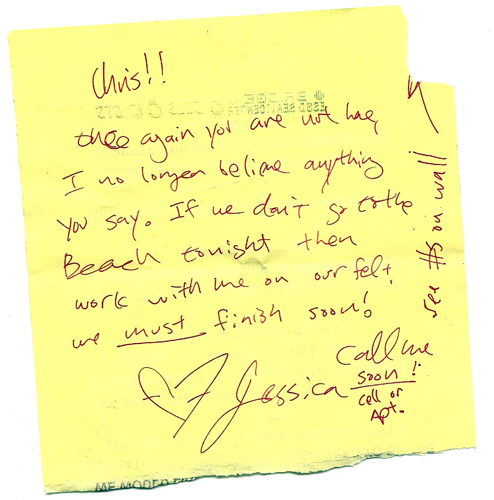 Chris!!
again you are not
I no longer believe anything
you say. If we don't go to the
Beach tonight then
work with me on our felt.
we must finish soon!
Jessica
call me
soon!
cell or
Apt.
see #s on wall